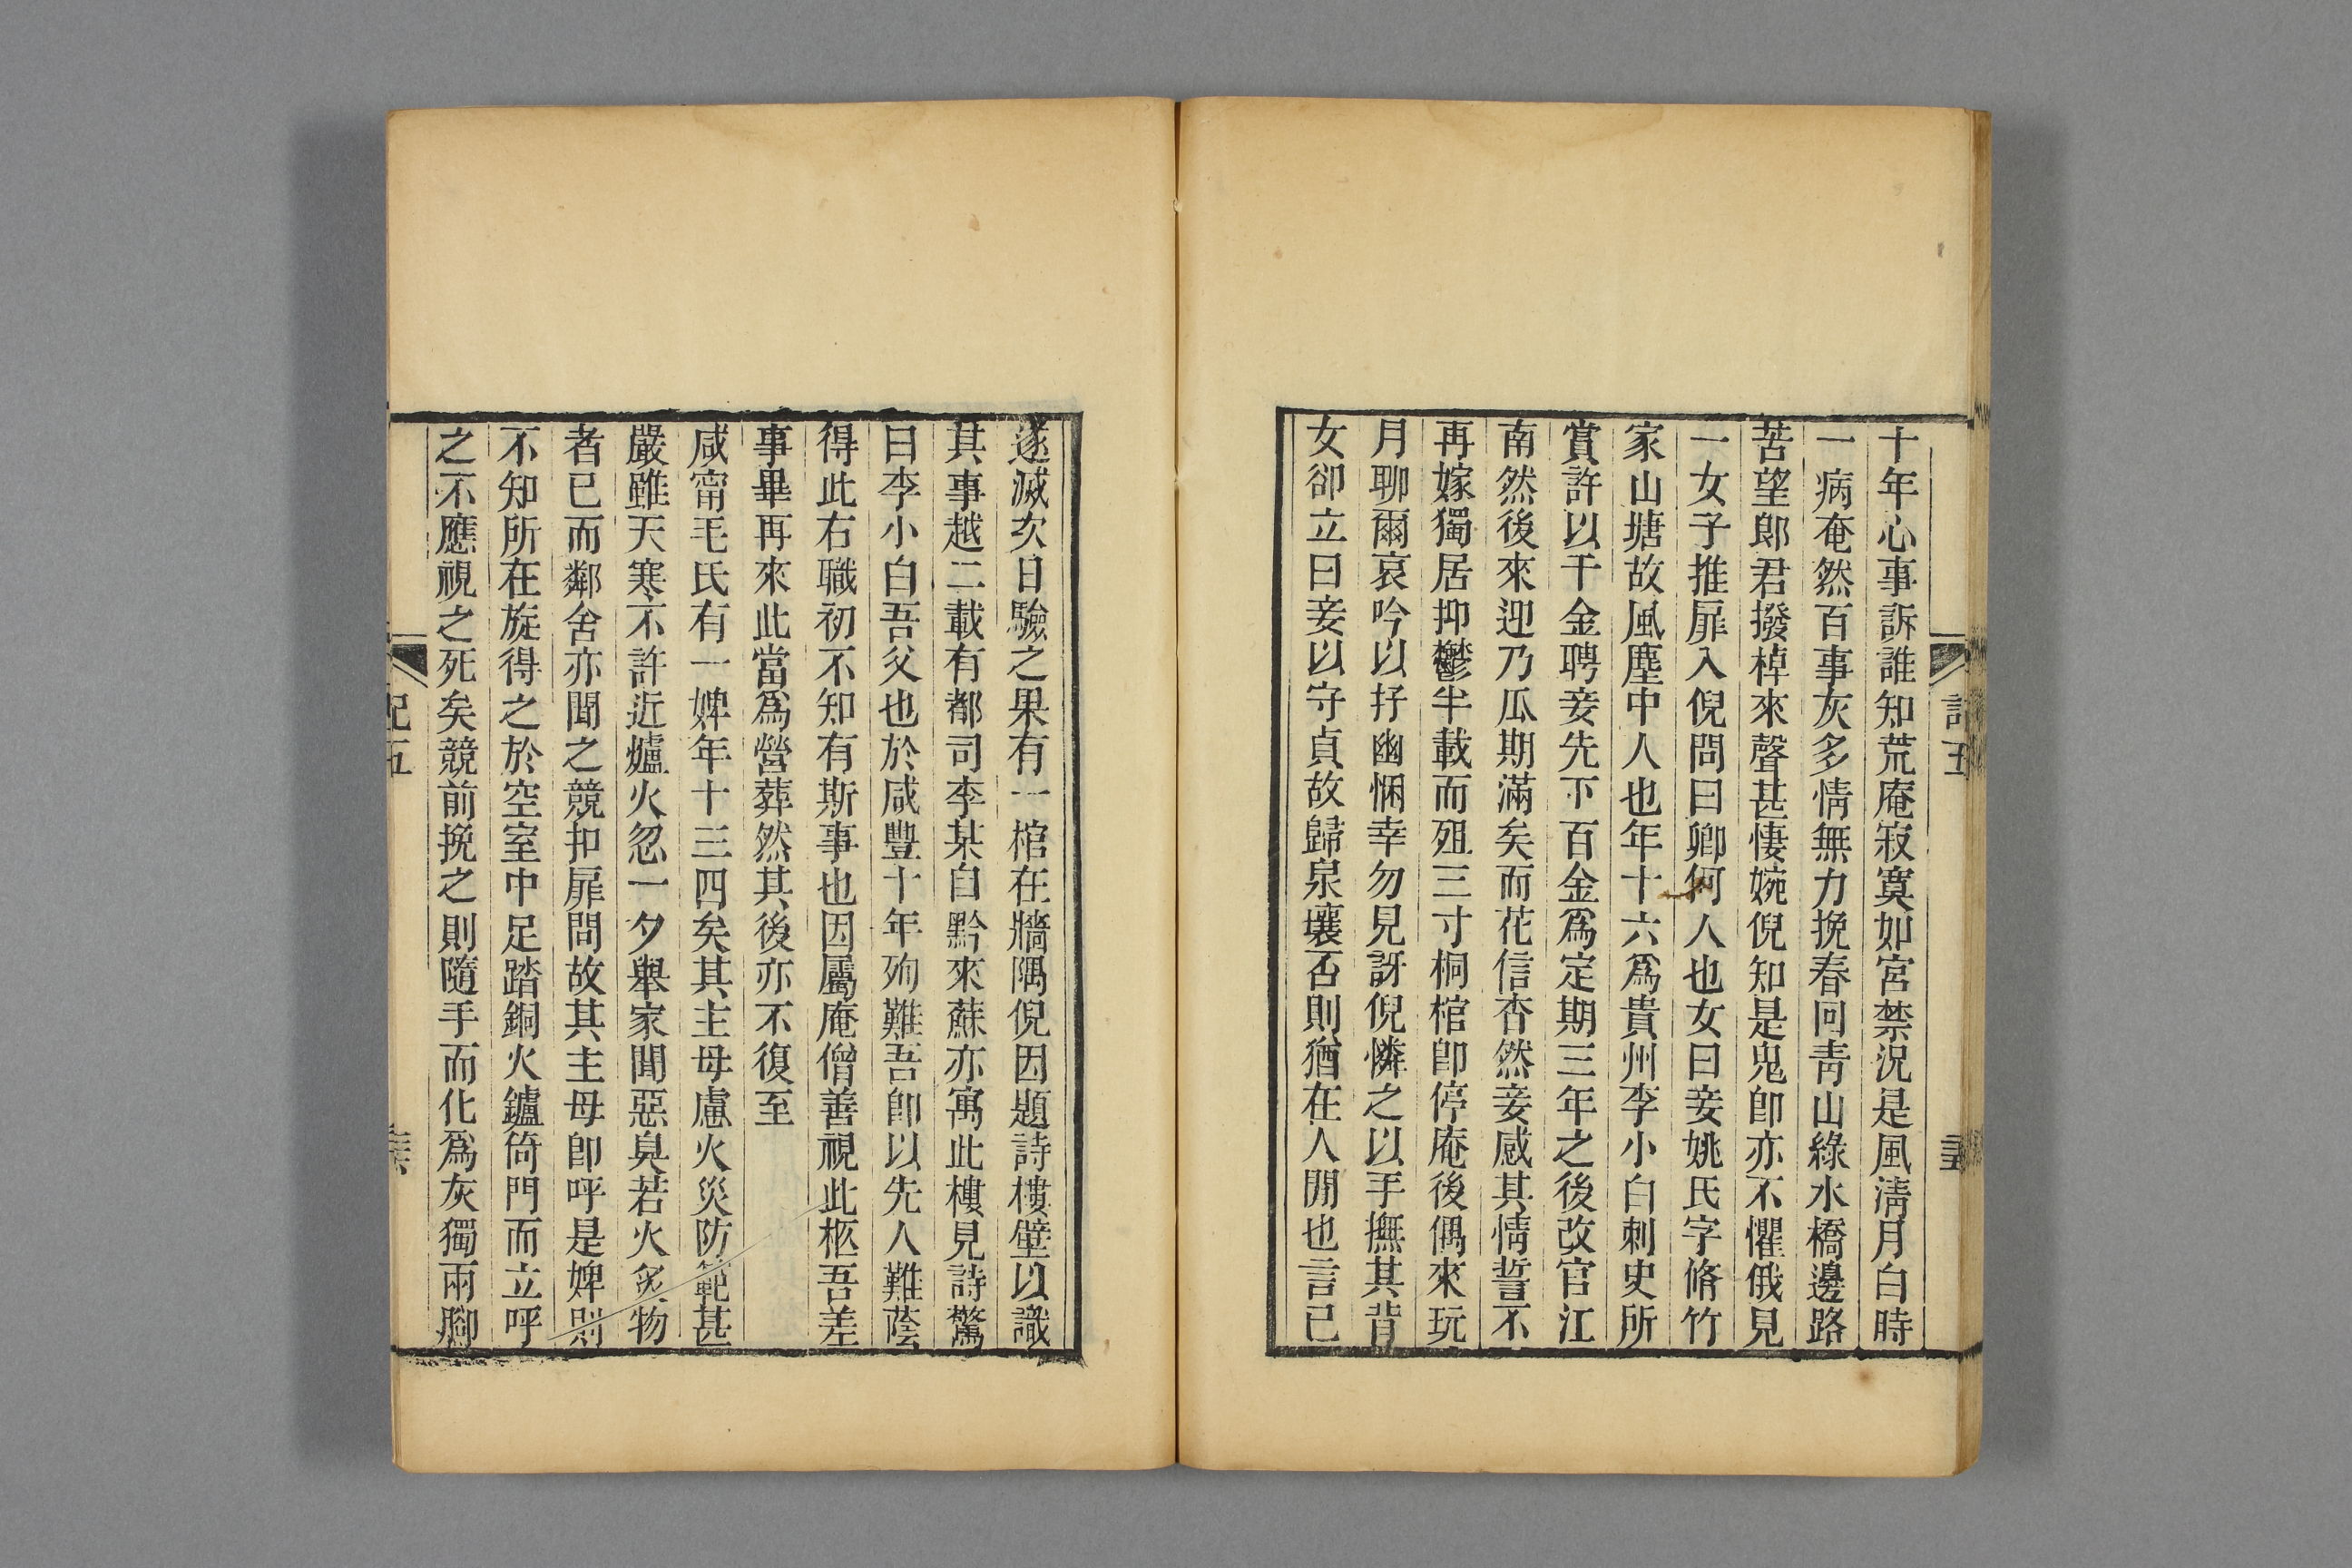 十年心事訴誰知荒庵寂寞如宮禁況是風淸月白時
一病奄然百事灰多情無力挽春回靑山綠水橋邊路
苦望郞君撥棹來聲甚悽婉倪知是鬼卽亦不懼俄見
一女子推扉入倪問曰卿何人也女曰妾姚氏字脩竹
家山塘故風塵中人也年十六爲貴州李小白刺史所
賞許以千金聘妾先下百金爲定期三年之後改官江
南然後來迎乃瓜期滿矣而花信杳然妾感其情誓不
再嫁獨居抑鬱半載而殂三寸桐棺卽停庵後偶來玩
月聊爾哀吟以抒幽悃幸勿見訝倪憐之以手撫其背
女卻立曰妾以守貞故歸泉壤否則猶在人閒也言已
遂滅次日驗之果有一棺在牆隅倪因題詩樓壁以識
其事越二載有都司李某自黔來蘇亦寓此樓見詩驚
曰李小白吾父也於咸豐十年殉難吾卽以先人難蔭
得此右職初不知有斯事也因屬庵僧善視此柩吾差
事畢再來此當爲營葬然其後亦不復至
咸甯毛氏有一婢年十三四矣其主母慮火災防範甚
嚴雖天寒不許近爐火忽一夕舉家聞惡臭若火炙物
者已而鄰舍亦聞之競扣扉問故其主母卽呼是婢則
不知所在旋得之於空室中足踏銅火鑪倚門而立呼
之不應視之死矣競前挽之則隨手而化爲灰獨兩腳
記五